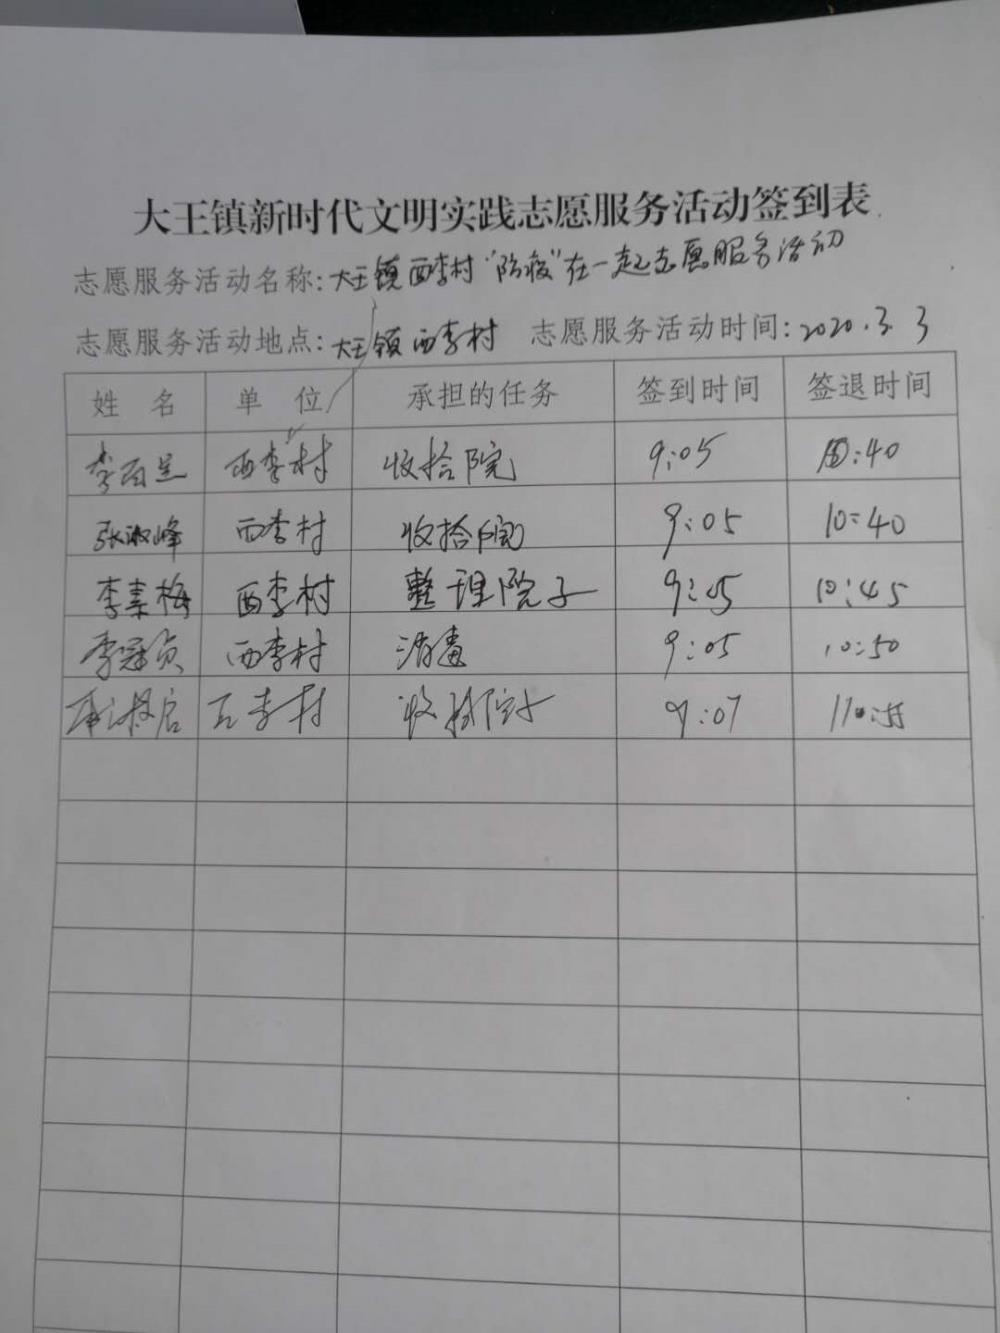 大王镇新时代文明实践志愿服务活动签到表
志愿服务活动名称:大王镇西李村“防疫”在一起志愿服务活动
志愿服务活动地点:大王镇西李村 志愿服务活动时间:2020.3.3
姓 名 单 位 承担的任务 签到时间 签退时间
李 西李村 收拾院 9:05 10:40
张淑峰 西李村 收拾院 9:05 10:40
李素梅 西李村 整理院子 9:05 10:45
李冠贞 西李村 消毒 9:05 10:50
西李村 收拾院子 9:07